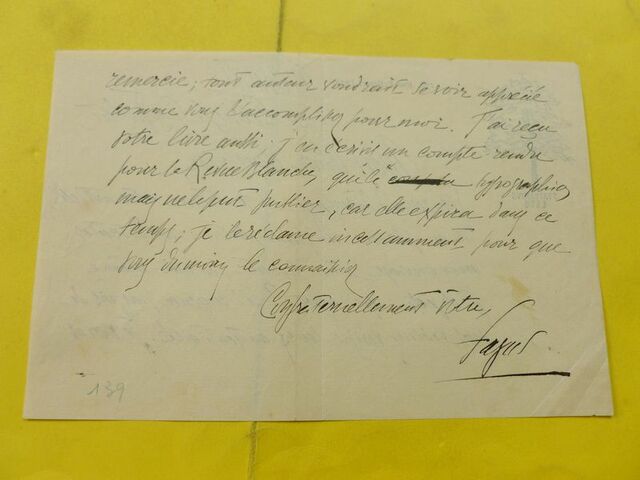 remercie; tout auteur voudrait se voir apprécié
comme vous l'accomplissez pour moi. J'ai reçu
votre livre aussi; j'en écrivis un compte rendu
pour la Revue Blanche, qu'elle typographia
mais ne le put publier, car elle expira dans ce
temps; je le réclame incessamment pour que
vous du moins le connaissiez
Confraternellement vôtre,
Fagus
139